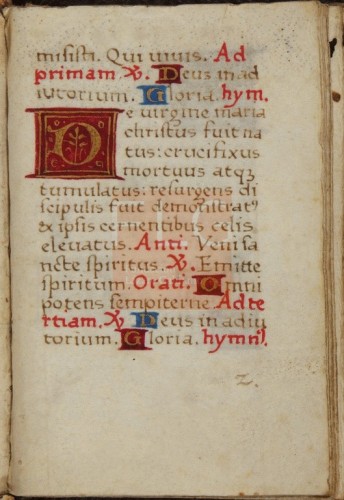 misisti. Qui vivis. Ad
primam. ℣. Deus in ad
iutorium. Gloria. hym.
De virgine maria
christus fuit na
tus: crucifixus
mortuus atqꝫ
tumulatus: resurgens di
scipulis fuit demonstratꝰ
& ipsis cernentibus celis
elevatus. Anti. Veni sa
ncte spiritus. ℣. Emitte
spiritum. Orati. Omni
potens sempiterne. Ad te
rtiam. ℣ Deus in adiu
torium. Gloria. hymnꝰ.
2.